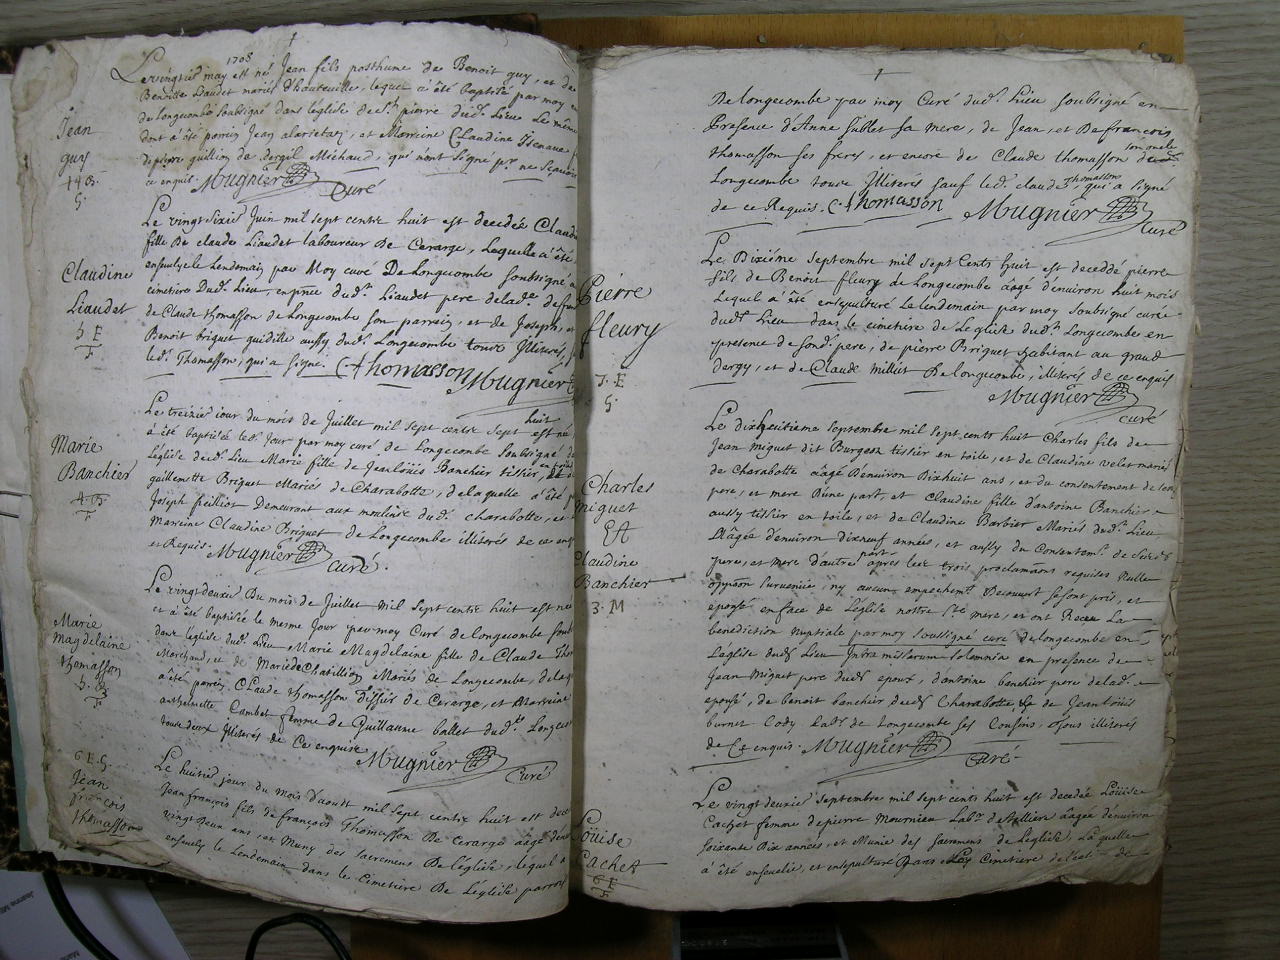 1708
Le vingtuie may est né Jean fils posthume de Benoit guy, et de
Benoitte Liaudet mariés d'hauteville, lequel a été baptisé par moy
de Longecombe soubsigné dans Léglise de St. pierre dud. Lieu Le même
dont a été parrin Jean alarietan, et Marreine Claudine
Michaud, qui n'ont signé pr. ne
ce enquis. Mugnier Curé
Jean
guy
Le vingt Sixie Juin mil sept cents huit est decedée
fille De claude Liaudet laboureur De Cerarge, Lequelle a été
ensevelye le Lendemain par Moy curé De Longecombe soubsigné
cimetiere Dud. Lieu, en pnce dud. Liaudet pere de lad.
de Claude thomasson de Longecombe son parrein, et de Joseph, et
Benoit briguet aussy dud. Longecombe tous Illiterés,
led. Thomasson, qui a signé. C. thomasson Mugnier
Claudine
Liaudet
Le treizie jour du mois de Juillet mil sept cents sept huit est né
a été baptisée led. Jour par moy curé de Longecombe soubsigné
Léglise dud. Lieu Marie fille de Jean loüis Banchier tissier,
guillemette Briguet Mariés de Charabotte, de laquelle a été
Joseph feilliot Demeurant aux moulins dud. charabotte, et
Marreine Claudine Briguet de Longecombe illiterés de ce
et Requis. Mugnier Curé.
Marie
Banchier
Le vingt deuxie Du mois de Juillet mil sept cents huit est né
et a été baptisée le mesme Jour par moy Curé de longecombe
dans leglise dud. Lieu Marie Magdelaine fille de Claude
Marchand, et de Marie de Chatillion Mariés de Longecombe,
a été parrin Claude thomasson Dissus de Cerarge, et Marreine
anthelmette Lambet femme de Guillaume ballet dud.
tous deux Illiterés de Ce enquis Mugnier Curé
Marie
Magdelaine
thomasson
Le huitie jour du mois D'aoust mil sept cents huit est
Jean francois fils de francois Thomasson De Cerarge aagé
vingt deux ans et Muny des sacremens De l'église, lequel a
ensevely le Lendemain dans le Cimetiere De Léglise
Jean
francois
thomasson
De longecombe par moy Curé dud. Lieu soubsigné en
Presence d'Anne Jublet sa mere, de Jean, et De francois
thomasson ses freres, et encore de Claude thomasson son oncle
Longecombe tous Illiterés sauf led. claude thomasson qui a signé
de ce Requis. C. thomasson Mugnier Curé
Le Dixiéme septembre mil sept Cents huit est deceddé pierre
fils de Benoit fleury de Longecombe aagé d'environ huit mois
Lequel a été ensepulturé Le lendemain par moy soubsigné curé
dud. Lieu dans le cimetiere de Léglise dud. Longecombe en
presence de sond. pere, de pierre Briguet habitant au grand
dergy, et de Claude milliet De longecombe, illiterés de ce enquis
Mugnier curé
Pierre
fleury
Le dixhuitieme septembre mil sept cents huit Charles fils de
Jean miguet dit Burgeon tissier en toile, et de Claudine velet mariés
de Charabotte aagé D'environ Dixhuit ans, et du consentement de son
pere, et mere D'une part, et Claudine fille d'antoine Banchier
aussy tissier en toile, et de Claudine Barbier Mariés dud. Lieu
Aagée d'environ dixneuf années, et aussy du Consentemt. de
pere, et mere d'autre part apres les trois proclamaons requises Nulle
oppaon survenüe, ny aucun empechemt. decouvert se sont pris, et
épousé en face de Léglise nostre Ste mere, et ont Receu La
benediction nuptiale par moy soussigné curé de longecombe en
Laglise dud. Lieu Intra missarum solemnia en presence de
Jean Miguet pere dud. epoux, d'antoine banchier pere de lad.
epousé, de benoit banchier dud. Charabotte, et de Jean loüis
burnet Cody Labr. de Longecombe ses Cousins, tous illiterés
de Ce enquis. Mugnier Curé.
Charles
miguet
Et
Claudine
Banchier
3. M
Le vingt deuxie septembre mil sept cents huit est decedée Loüise
Cachet femme de pierre Mournieu Labr. aagée d'environ
soixante Dix années, et Munie des sacremens de Léglise Laquelle
a été ensevelie, et ensepulturé Dans Le Cimetiere
Loüise
Cachet